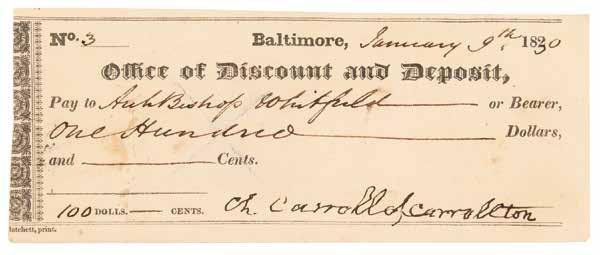 No. 3 Baltimore, January 9th, 1830
Office of Discount and Deposit,
Pay to Arch Bishop Whitfield or Bearer,
One Hundred Dollars,
and Cents.
100 DOLLS. CENTS. Ch. Carroll of Carrollton
Hatchett, print.